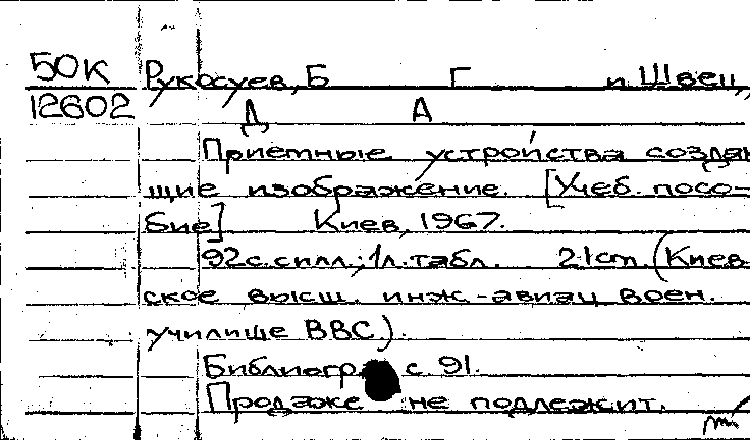 50К Рукосуев, Б Г и Швец,
12602 Д А
Приемные устройства создаю
щие изображение. [Учеб. посо-
бие] Киев, 1967.
92 с. с илл.; 1 л. табл. 21 cm (Киев
ское высш. инж.-авиац. воен.
училище ВВС).
Библиогр. с. 91.
Продаже не подлежит.